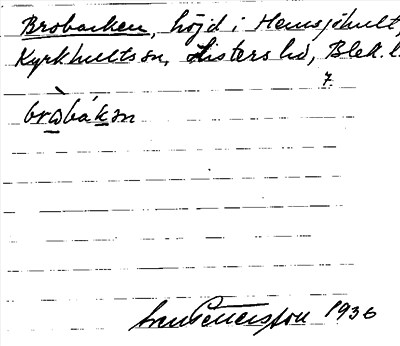 Brobacken, höjd i Hemsjöhult,
Kyrkhults sn, Listers hd, Blek. l.
7.
bròbákən
Sven Pettersson 1936